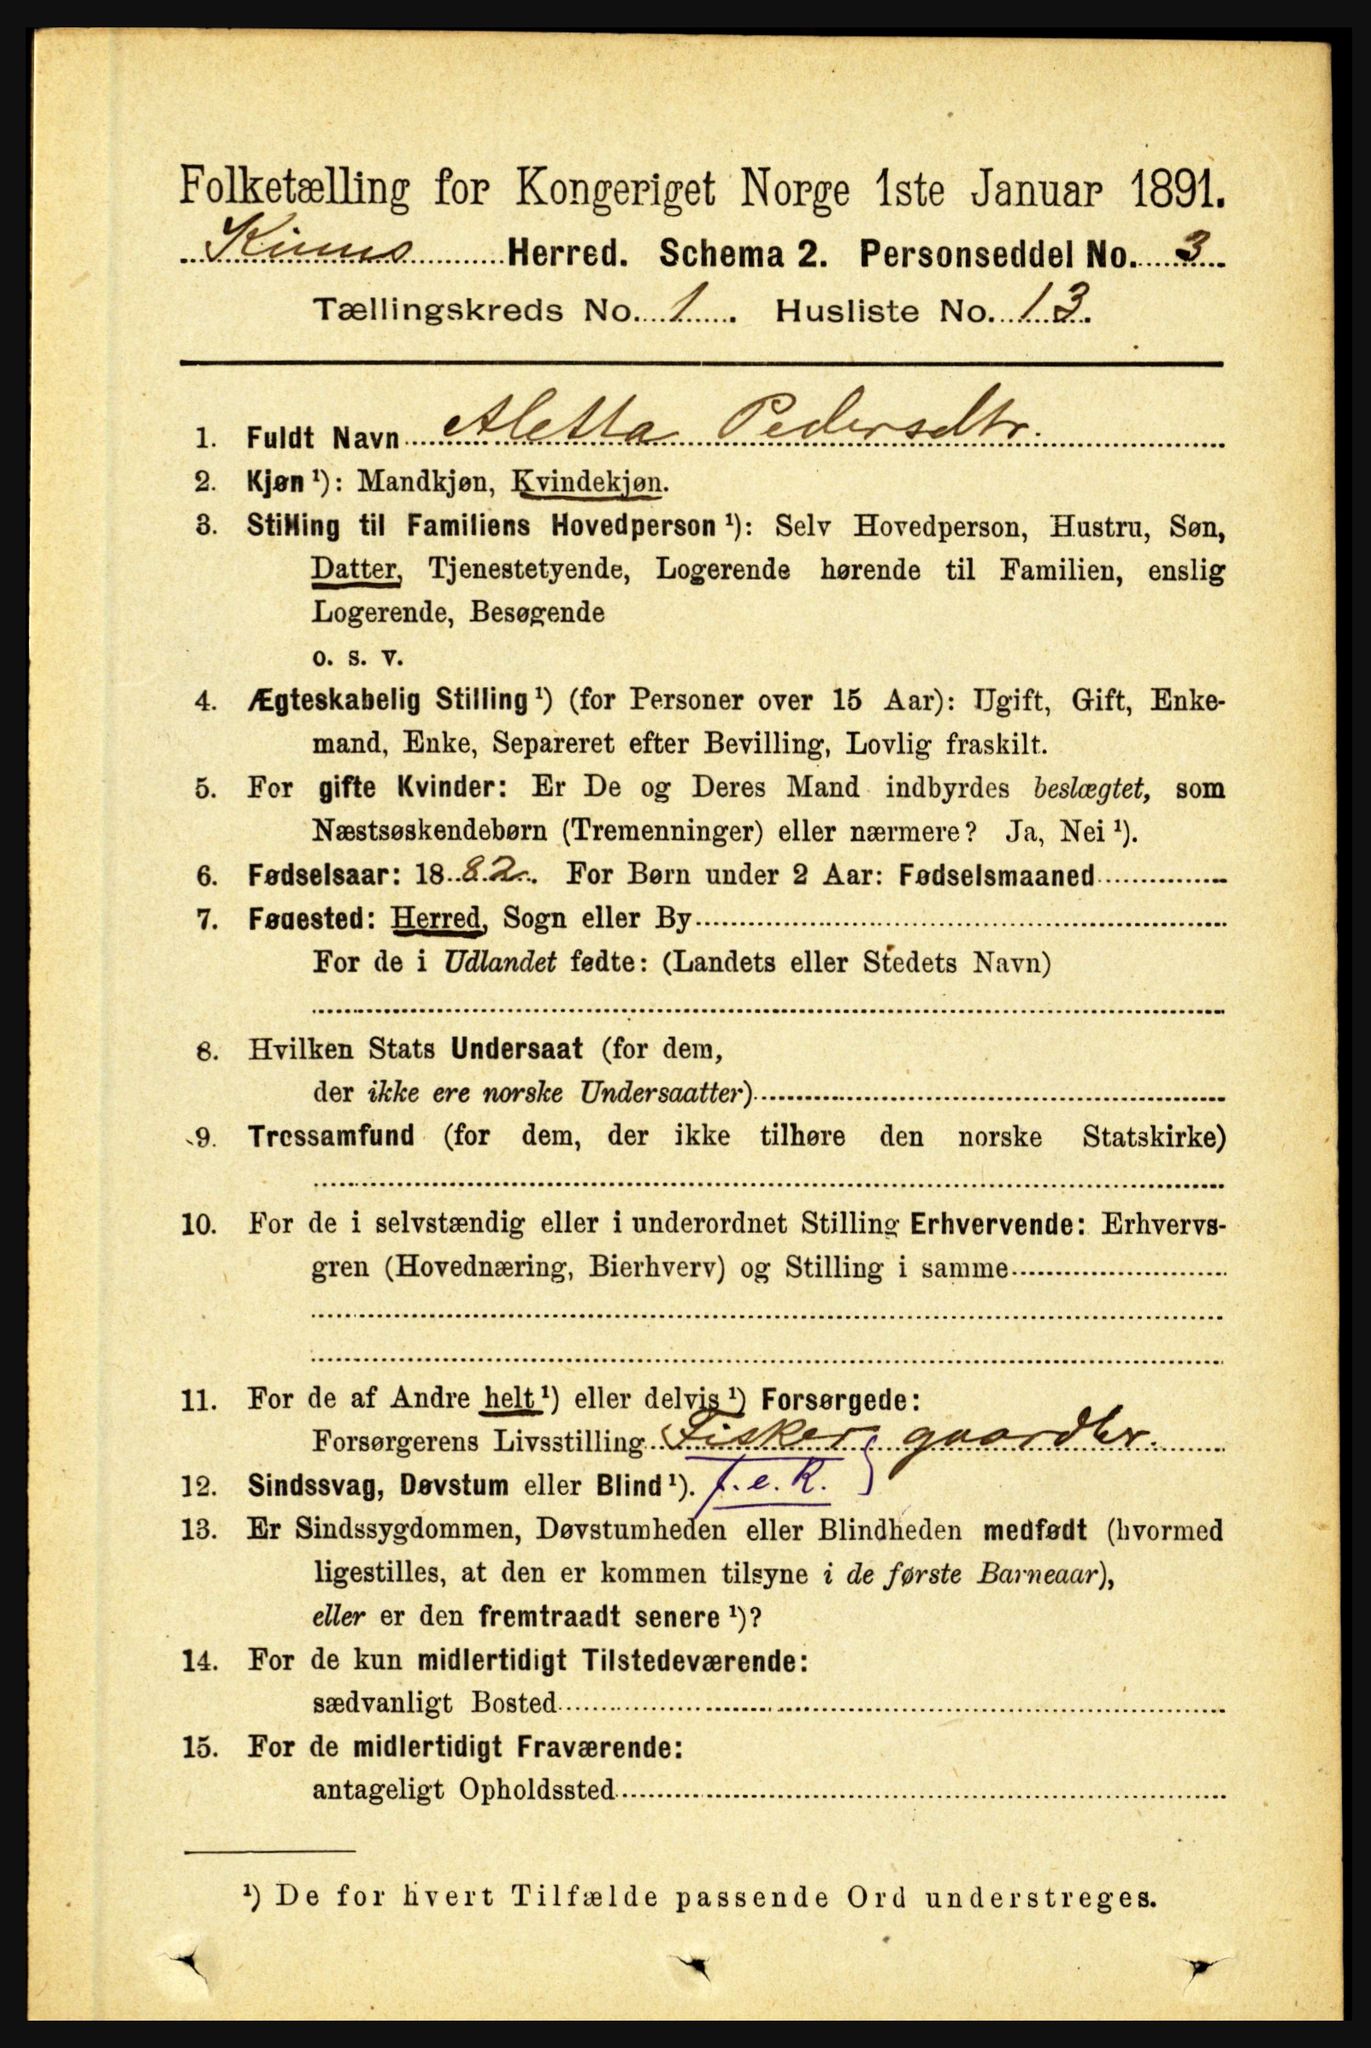 Folketælling for Kongeriget Norge 1ste Januar 1891.
Kinns Herred. Schema 2. Personseddel No. 3.
Tællingskreds No. 1. Husliste No. 13.
1. Fuldt Navn Aletta Pedersdtr.
2. Kjøn ¹): Mandkjøn, Kvindekjøn.
3. Stilling til Familiens Hovedperson ¹): Selv Hovedperson, Hustru, Søn,
Datter, Tjenestetyende, Logerende hørende til Familien, enslig
Logerende, Besøgende
o. s. v.
4. Ægteskabelig Stilling ¹) (for Personer over 15 Aar): Ugift, Gift, Enke-
mand, Enke, Separeret efter Bevilling, Lovlig fraskilt.
5. For gifte Kvinder: Er De og Deres Mand indbyrdes beslægtet, som
Næstsøskendebørn (Tremenninger) eller nærmere? Ja, Nei ¹).
6. Fødselsaar: 1882. For Børn under 2 Aar: Fødselsmaaned
7. Fødested: Herred, Sogn eller By
For de i Udlandet fødte: (Landets eller Stedets Navn)
8. Hvilken Stats Undersaat (for dem,
der ikke ere norske Undersaatter)
9. Trossamfund (for dem, der ikke tilhøre den norske Statskirke)
10. For de i selvstændig eller i underordnet Stilling Erhvervende: Erhvervs-
gren (Hovednæring, Bierhverv) og Stilling i samme
11. For de af Andre helt ¹) eller delvis ¹) Forsørgede:
Forsørgerens Livsstilling Fisker gaardbr.
12. Sindssvag, Døvstum eller Blind ¹). f. e. R.
13. Er Sindssygdommen, Døvstumheden eller Blindheden medfødt (hvormed
ligestilles, at den er kommen tilsyne i de første Barneaar),
eller er den fremtraadt senere ¹)?
14. For de kun midlertidigt Tilstedeværende:
sædvanligt Bosted
15. For de midlertidigt Fraværende:
antageligt Opholdssted
¹) De for hvert Tilfælde passende Ord understreges.